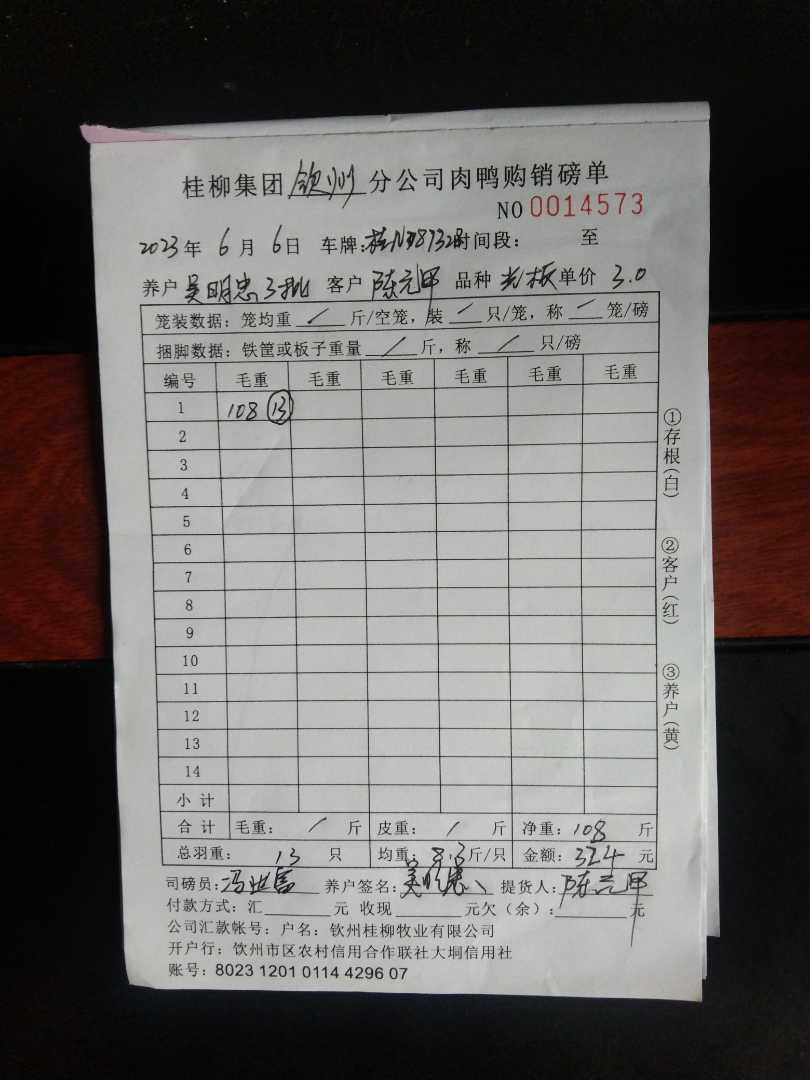 桂柳集团 钦州 分公司肉鸭购销磅单
NO 0014573
2023年 6月 6日 车牌: 时间段: 至
养户 吴明忠3批 客户 陈元甲 品种 光板 单价 3.0
笼装数据: 笼均重 / 斤/空笼, 装 / 只/笼, 称 / 笼/磅
捆脚数据: 铁筐或板子重量 / 斤, 称 / 只/磅
编号 毛重 毛重 毛重 毛重 毛重 毛重
1 108 ⑬
2
3
4
5
6
7
8
9
10
11
12
13
14
小 计
合 计 毛重: / 斤 皮重: / 斤 净重: 108 斤
总羽重: 13 只 均重: 8.3 斤/只 金额: 324 元
司磅员: 养户签名: 吴明忠 提货人: 陈元甲
付款方式: 汇______元 收现______元欠(余):______元
公司汇款帐号: 户名: 钦州桂柳牧业有限公司
开户行: 钦州市区农村信用合作联社大垌信用社
账号: 8023 1201 0114 4296 07
①存根(白)
②客户(红)
③养户(黄)